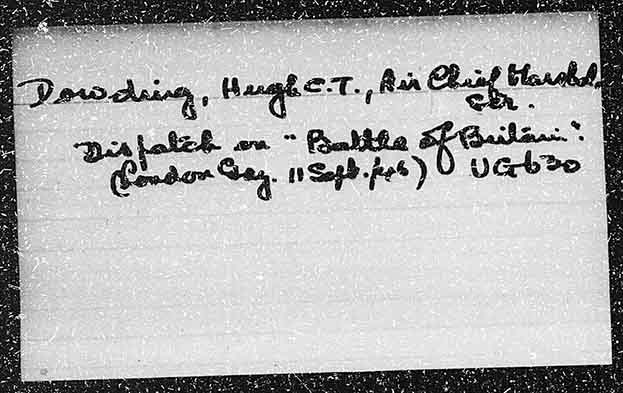 Dowding, Hugh C.T., Air Chief Marshal.
Sir.
Dispatch on "Battle of Britain".
(London Gaz. 11 Sept. /46) UG630